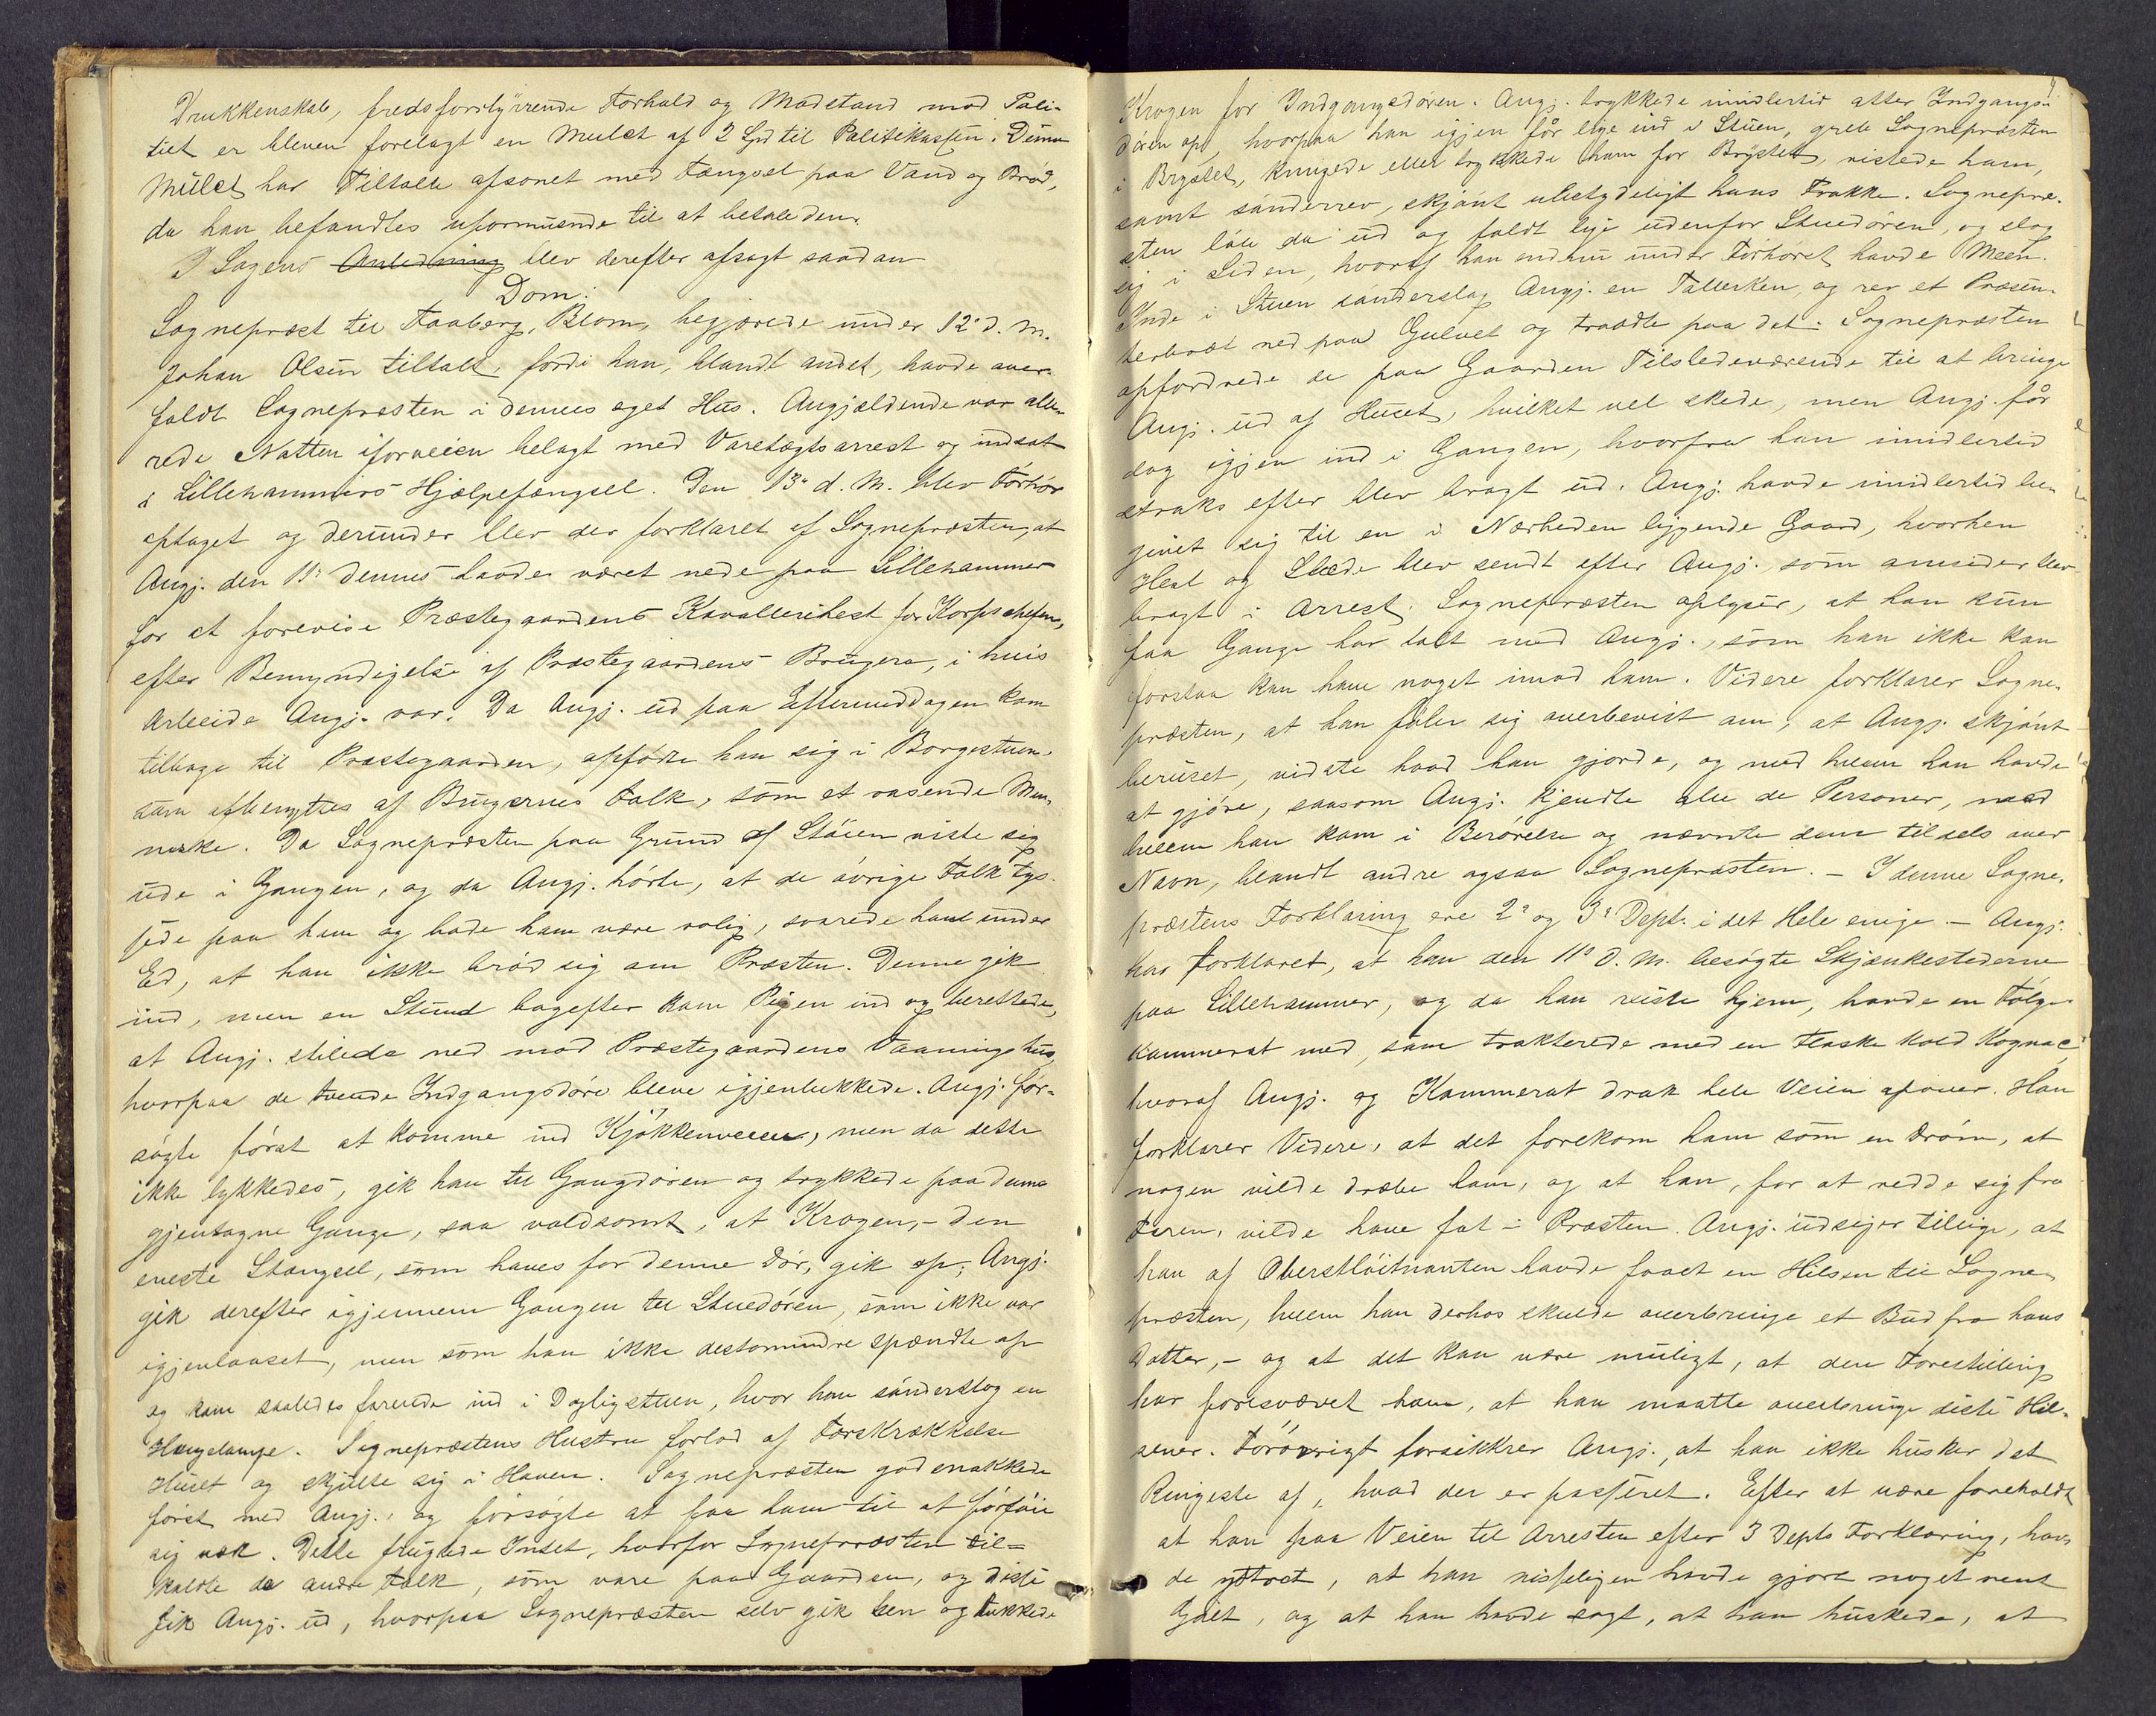 Drukkenskab, fredsforstyrrende Forhold og Modstand mod Poli-
tiet er bleven forelagt en Mulct af 2 Spd til Politikassen. Denne
Mulct har Tiltalte afsonet med Fængsel paa Vand og Brød,
da han befandtes uformuende til at betale den.
I Sagens Anledning blev derefter afsagt saadan
Dom:
Sognepræst til Faaberg, Blom, begjærede under 12te d. M.
Johan Olsen tiltalt, fordi han, blandt andet, havde over-
faldt Sognepræsten i dennes eget Hus. Angjældende var alle-
rede Natten iforveien belagt med Varetægtsarrest og indsat
i Lillehammers Hjælpefængsel. Den 13de d. M. blev Forhør
optaget og derunder blev der forklaret af Sognepræsten, at
Angj. den 11te dennes havde været nede paa Lillehammer
for at forevise Præstegaardens Kavallerihest for Korpschefen,
efter Bemyndigelse af Præstegaardens Brugere, i hvis
Arbeide Angj. var. Da Angj. ud paa Eftermiddagen kom
tilbage til Præstegaarden, opførte han sig i Borgestuen,
som afbenyttes af Brugernes Folk, som et rasende Men-
neske. Da Sognepræsten paa Grund af Støien viste sig
ude i Gangen, og da Angj. hørte, at de øvrige Folk tys-
sede paa ham og bade ham være rolig, svarede han under
Ed, at han ikke brød sig om Præsten. Denne gik
ind, men en Stund bagefter kom Pigen ind og berettede,
at Angj. stilede ned mod Præstegaardens Vaaningshus,
hvorpaa de tvende Indgangsdøre bleve igjenlukkede. Angj. for-
søgte først at komme ind Kjøkkenveien, men da dette
ikke lykkedes, gik han til Gangdøren og trykkede paa denne
gjentagne Gange, saa voldsomt, at Krogen, - den
eneste Stængsel, som haves for denne Dør, gik op; Angj.
gik derefter igjennem Gangen til Stuedøren, som ikke var
igjenlaaset, men som han ikke destomindre spændte op
og kom saaledes farende ind i Dagligstuen, hvor han sønderslog en
Hængelampe. Sognepræstens Hustru forlod af Forskrækkelse
Huset og skjulte sig i Haven. Sognepræsten godsnakkede
først med Angj., og forsøgte at faa ham til at forføie
sig væk. Dette frugtede Intet, hvorfor Sognepræsten til-
kaldte de andre Folk, som vare paa Gaarden, og disse
fik Angj. ud, hvorpaa Sognepræsten selv gik hen og lukkede
Krogen for Indgangsdøren. Angj. trykkede imidlertid atter Indgangs-
døren op, hvorpaa han igjen før lige ind i Stuen, greb Sognepræsten
i Brystet, knugede eller trykkede ham for Brystet, ristede ham,
samt sønderrev, skjønt ubetydeligt hans Frakke. Sognepræ-
sten løb da ud og faldt lige udenfor Stuedøren, og slog
sig i Siden, hvoraf han endnu under Forhøret havde Meen.
Inde i Stuen sønderslog Angj. en Tallerken, og rev et Præsen-
terbræt ned paa Gulvet og traadte paa det. Sognepræsten
opfordrede de paa Gaarden Tilstedeværende til at bringe
Angj. ud af Huset, hvilket vel skede, men Angj. før
dog igjen ind i Gangen, hvorfra han imidlertid
straks efter blev bragt ud. Angj. havde imidlertid be-
givet sig til en i Nærheden liggende Gaard, hvorhen
Hest og Slæde blev sendt efter Angj., som ansiden blev
bragt i Arrest. Sognepræsten oplyser, at han kun
faa Gange har talt med Angj., som han ikke kan
forstaa kan have noget imod ham. Videre forklarer Sogne-
præsten, at han føler sig overbevist om, at Angj. skjønt
beruset, vidste hvad han gjorde, og med hvem han havde
at gjøre, saasom Angj. kjendte alle de Personer, med
hvem han kom i Berørelse og nævnte dem tildels ved
Navn, blandt andre ogsaa Sognepræsten. - I denne Sogne-
præstens Forklaring ere 2det og 3die Dept. i det Hele enige - Angj.
har forklaret, at han den 11te d. M. besøgte Skjænkestederne
paa Lillehammer, og da han reiste hjem, havde en Følge-
kammerat med, som trakterede med en Flaske kold Kognac
hvoraf Angj. og Kammerat drak hele Veien opover. Han
forklarer Videre, at det forekom ham som en Drøm, at
nogen vilde dræbe ham, og at han, for at redde sig fra
Faren, vilde have fat i Præsten. Angj. udsiger tillige, at
han af Oberstløitnanten havde faaet en Hilsen til Sogne-
præsten, hvem han derhos skulde overbringe et Bud fra hans
Datter, - og at det kan være muligt, at den Forestilling
har foresvævet ham, at han maatte overbringe disse Hil-
sener. Forøvrigt forsikkrer Angj., at han ikke husker det
Ringeste af, hvad der er passeret. Efter at være foreholdt
at han paa Veien til Arresten efter 3 Depts Forklaring, hav-
de yttret, at han visseligen havde gjort noget rent
Galt, og at han havde sagt, at han huskede, at